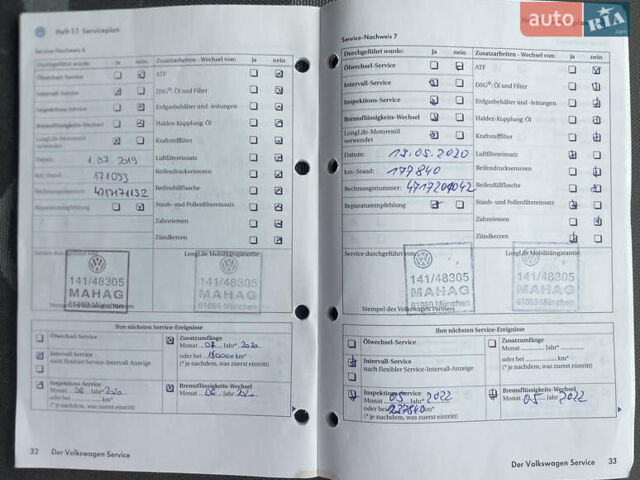 Heft 1.1 Serviceplan
Service-Nachweis 6
Durchgeführt wurde: ja nein
Ölwechsel-Service
Intervall-Service
Inspektions-Service
Bremsflüssigkeits-Wechsel
LongLife-Motorenöl
verwendet
Datum: 1.07.2019
km-Stand: 171093
Rechnungsnummer: 4717171132
Reparaturempfehlung
Zusatzarbeiten - Wechsel von: ja nein
ATF
DSG®: Öl und Filter
Erdgasbehälter und -leitungen
Haldex-Kupplung: Öl
Kraftstofffilter
Luftfiltereinsatz
Reifendrucksensoren
Reifenfüllflasche
Staub- und Pollenfiltereinsatz
Zahnriemen
Zündkerzen
LongLife Mobilitätsgarantie:
141/48305
MAHAG
81069 München
141/48305
MAHAG
81069 München
Ihre nächsten Service-Ereignisse
Ölwechsel-Service
Intervall-Service
nach flexibler Service-Intervall-Anzeige
Inspektions-Service
Monat 06 Jahr* 2020
oder bei km*
(* je nachdem, was zuerst eintritt)
Zusatzumfänge
Monat 07 Jahr* 2020
oder bei km*
(* je nachdem, was zuerst eintritt)
Bremsflüssigkeits-Wechsel
Monat 06 Jahr
32 Der Volkswagen Service
auto RIA.com
Service-Nachweis 7
Durchgeführt wurde: ja nein
Ölwechsel-Service
Intervall-Service
Inspektions-Service
Bremsflüssigkeits-Wechsel
LongLife-Motorenöl
verwendet
Datum: 19.05.2020
km-Stand: 177840
Rechnungsnummer: 4717201042
Reparaturempfehlung
Zusatzarbeiten - Wechsel von: ja nein
ATF
DSG®: Öl und Filter
Erdgasbehälter und -leitungen
Haldex-Kupplung: Öl
Kraftstofffilter
Luftfiltereinsatz
Reifendrucksensoren
Reifenfüllflasche
Staub- und Pollenfiltereinsatz
Zahnriemen
Zündkerzen
Service durchgeführt von:
LongLife Mobilitätsgarantie:
141/48305
MAHAG
81069 München
141/48305
MAHAG
81069 München
Stempel des Volkswagen Partners
Ihre nächsten Service-Ereignisse
Ölwechsel-Service
Intervall-Service
nach flexibler Service-Intervall-Anzeige
Inspektions-Service
Monat 05 Jahr* 2022
oder bei 237840 km*
(* je nachdem, was zuerst eintritt)
Zusatzumfänge
Monat Jahr*
oder bei km*
(* je nachdem, was zuerst eintritt)
Bremsflüssigkeits-Wechsel
Monat 05 Jahr 2022
Der Volkswagen Service 33